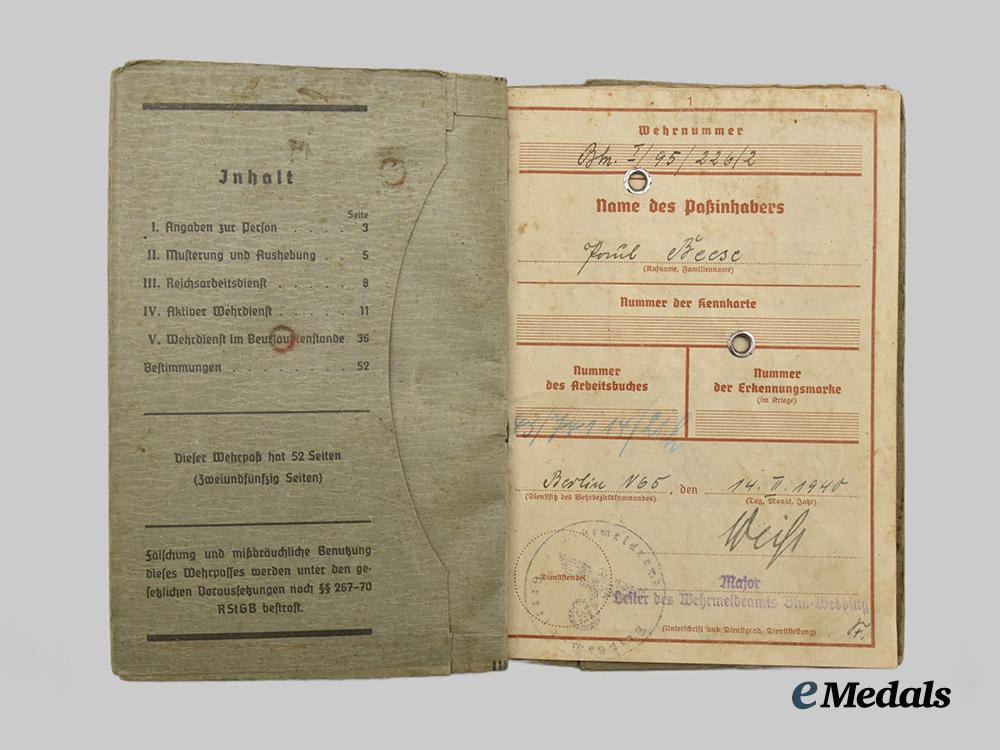 Inhalt
Seite
I. Angaben zur Person . . . . . 3
II. Musterung und Aushebung . . 5
III. Reichsarbeitsdienst . . . . . 8
IV. Aktiver Wehrdienst . . . . . 11
V. Wehrdienst im Beurlaubtenstande 36
Bestimmungen . . . . . . . . 52
Dieser Wehrpaß hat 52 Seiten
(Zweiundfünfzig Seiten)
Fälschung und mißbräuchliche Benutzung
dieses Wehrpasses werden unter den ge-
setzlichen Voraussetzungen nach §§ 267–70
RStGB bestraft.
1
Wehrnummer
Bln. I/95/226/2
Name des Paßinhabers
Paul Beese
(Rufname, Familienname)
Nummer der Kennkarte
Nummer
des Arbeitsbuches
Nummer
der Erkennungsmarke
(im Kriege)
Berlin N65, den 14. II. 1940
(Dienstsitz des Wehrbezirkskommandos) (Tag, Monat, Jahr)
Dienststempel
Major
Leiter des Wehrmeldeamts Bln.-Wedding
(Unterschrift und Dienstgrad, Dienststellung)
eMedals